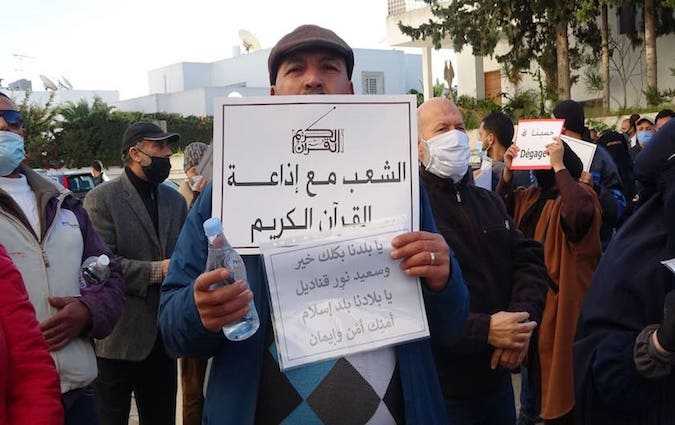 القرآن الكريم
الشعب مع إذاعة
القرآن الكريم
يا بلدنا بكلك خير
وسعيد نور قناديل
يا بلادنا بلد إسلام
أمنك أمن وإيمان
Dégage